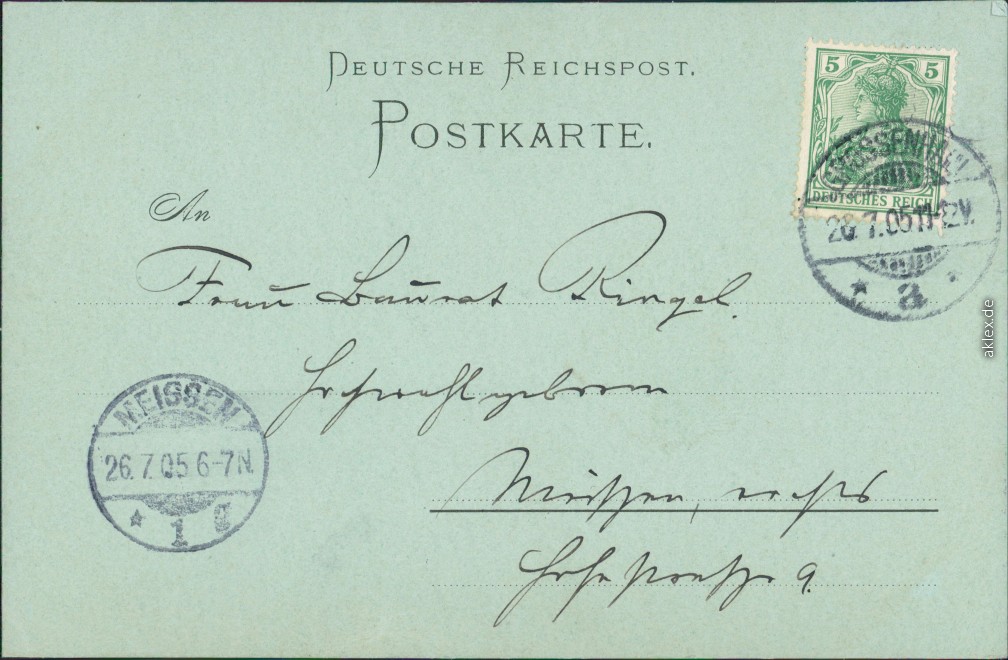 DEUTSCHE REICHSPOST.
POSTKARTE.
5 5
DEUTSCHES REICH
26.7.05 11-12V.
* a *
An
Frau Baurat Ringel.
Hochwohlgeboren
MEISSEN
26.7.05 6-7N.
* 1 g
Meißen, rechts
Hohestraße 9.
aklex.de